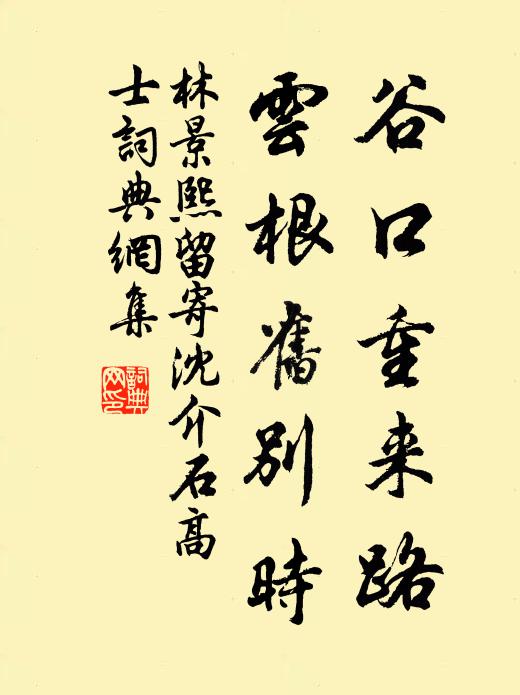 谷口重来路
雲根舊別時
林景熙留寄沈介石高
士詞典網集
詞典網印